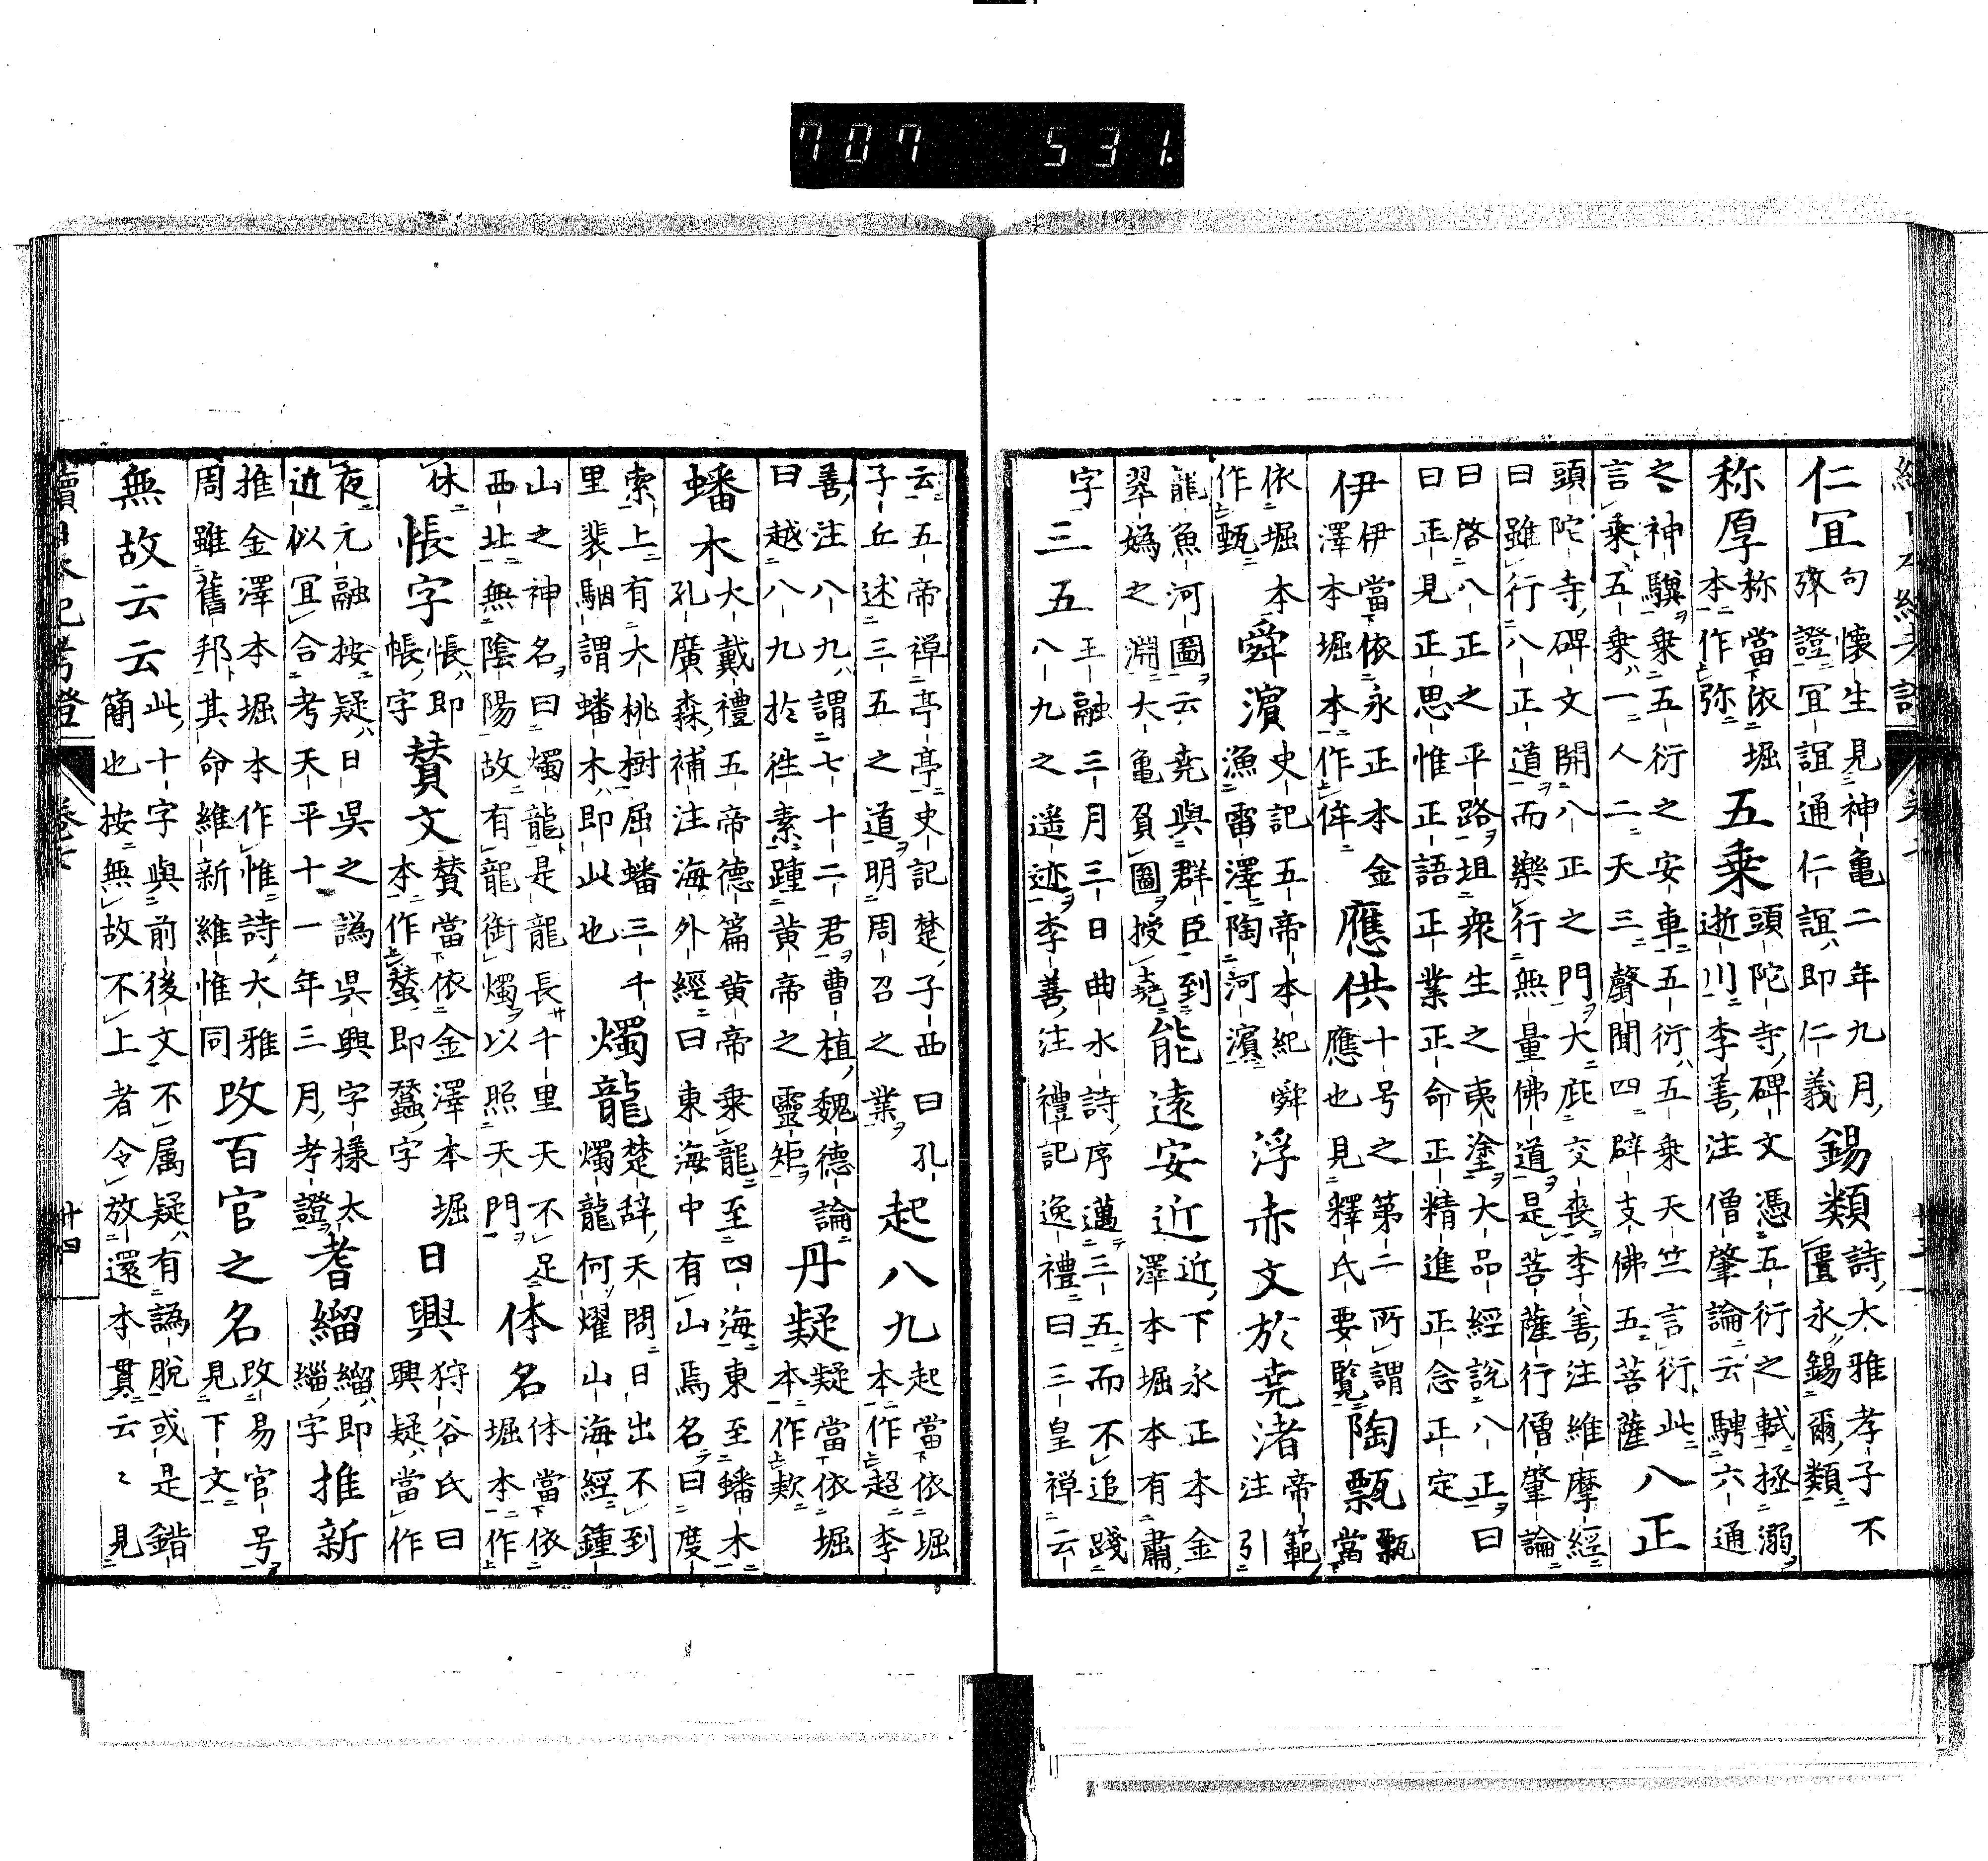 707 531.
仁宜句懷生見神亀二年九月
攷證宜誼通仁誼即仁義錫類詩大雅孝子不
匱永錫爾類
称厚称當依堀
本作弥五乗頭陀寺碑文憑五衍之軾拯溺
逝川李善注僧肇論云騁六通
之神驥乗五衍之安車五衍五乗天竺言衍此
言乗五乗一人二天三聲聞四辟支佛五菩薩八正
頭陀寺碑文開八正之門大庇交喪李善注維摩經
曰雖行八正道而樂行無量佛道是菩薩行僧肇論
曰啓八正之平路坦衆生之夷塗大品經説八正曰
正見正思惟正語正業正命正精進正念正定
伊伊當依永正本金
澤本堀本作侔應供十号之第二所謂
應也見釋氏要覧陶甄甄當
依堀本
作甄舜濱史記五帝本紀舜
漁雷澤陶河濱浮赤文於尭渚帝範
注引
龍魚河圖云尭與群臣到
翠嬀之淵大亀負圖授尭能遠安近近下永正本金
澤本堀本有肅
字三五八九之遥迹王融三月三日曲水詩序邁三五而不追踐
李善注禮記逸禮曰三皇禅云
云五帝禅亭亭史記楚子西曰孔
子丘述三五之道明周召之業起八九起當依堀
本作超李
善注八九謂七十二君曹植魏德論
曰越八九於徃素踵黄帝之靈矩丹疑疑當依堀
本作款
蟠木大戴禮五帝德篇黄帝乗龍至四海東至蟠木
孔廣森補注海外經曰東海中有山焉名曰度
索上有大桃樹屈蟠三千
里裴駰謂蟠木即此也燭龍楚辞天問日出不到
燭龍何燿山海經鍾
山之神名曰燭龍是龍長千里天不足
西北無陰陽故有龍銜燭以照天門体名体當依
堀本作
休悵字悵即
帳字賛文賛當依金澤本堀
本作蝥即蟊字日興狩谷氏曰
興疑當作
夜元融按疑日呉之譌呉興字様太
近似宜合考天平十一年三月考證耆緇緇即
緇字推新
推金澤本堀本作惟詩大雅
周雖舊邦其命維新維惟同改百官之名改易官号
見下文
無故云云此十字與前後文不属疑有譌脱或是錯
簡也按無故不上者令放還本貫云〻見
續日本紀考證 卷七 廿四